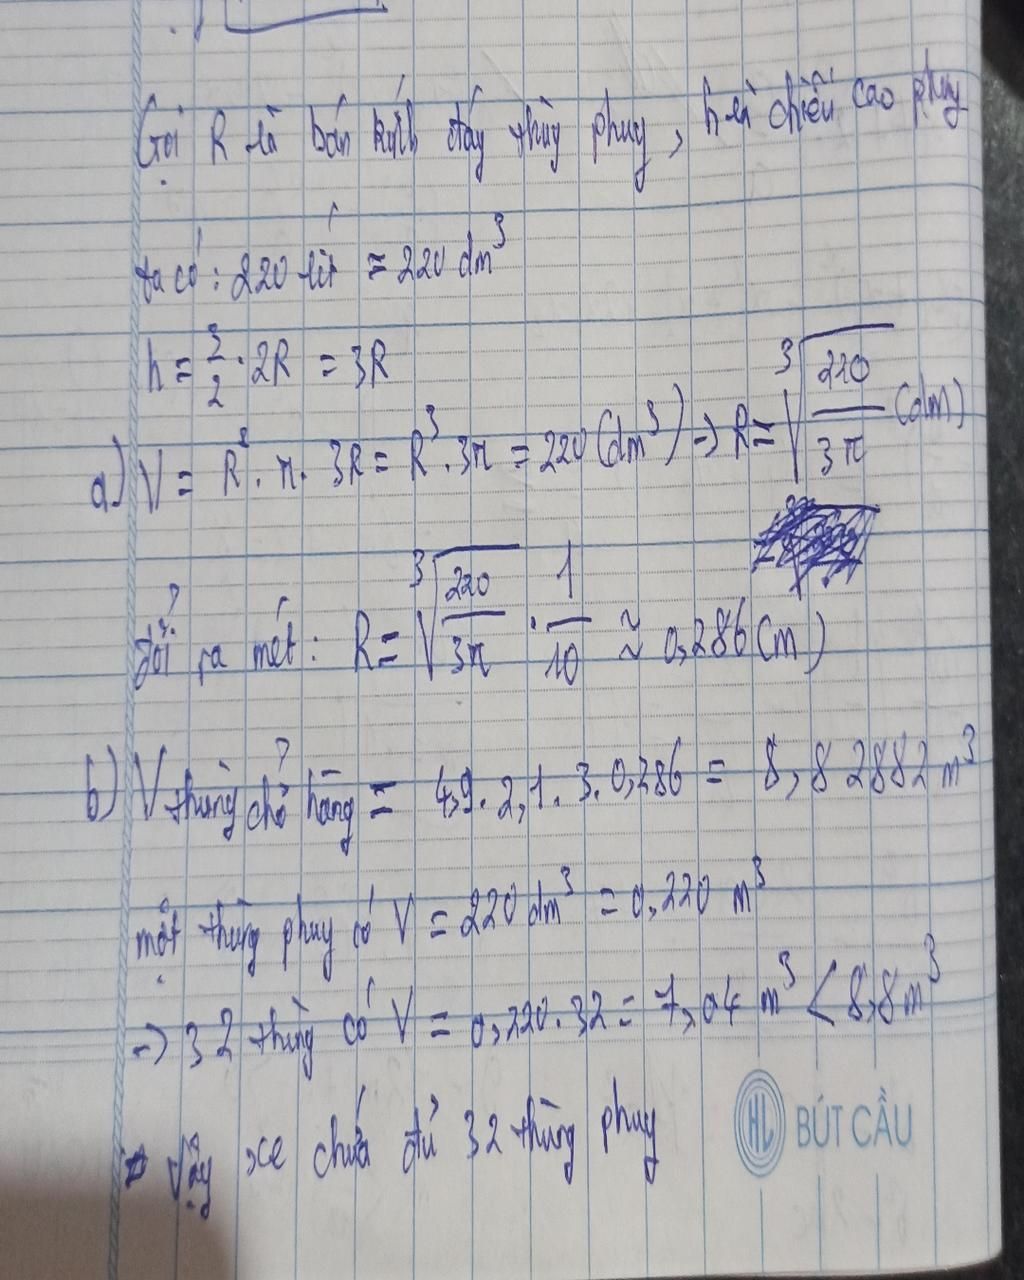 Gọi R là bán kính đáy thùy phuy, h là chiều cao phuy
ta có: 220 lít = 220 dm³
h = 3/2 . 2R = 3R
a) V = R² . π . 3R = R³ . 3π = 220 (dm³) → R = ∛(220/3π) (dm)
đổi ra mét: R = ∛(220/3π) . 1/10 ≈ 0,286 (m)
b) V thùng chở hàng = 4,9 . 2,1 . 3 . 0,286 = 8,82882 m³
một thùng phuy có V = 220 dm³ = 0,220 m³
→ 32 thùng có V = 0,220 . 32 = 7,04 m³ < 8,8 m³
Vậy xe chứa đủ 32 thùng phuy
HL BÚT CẦU